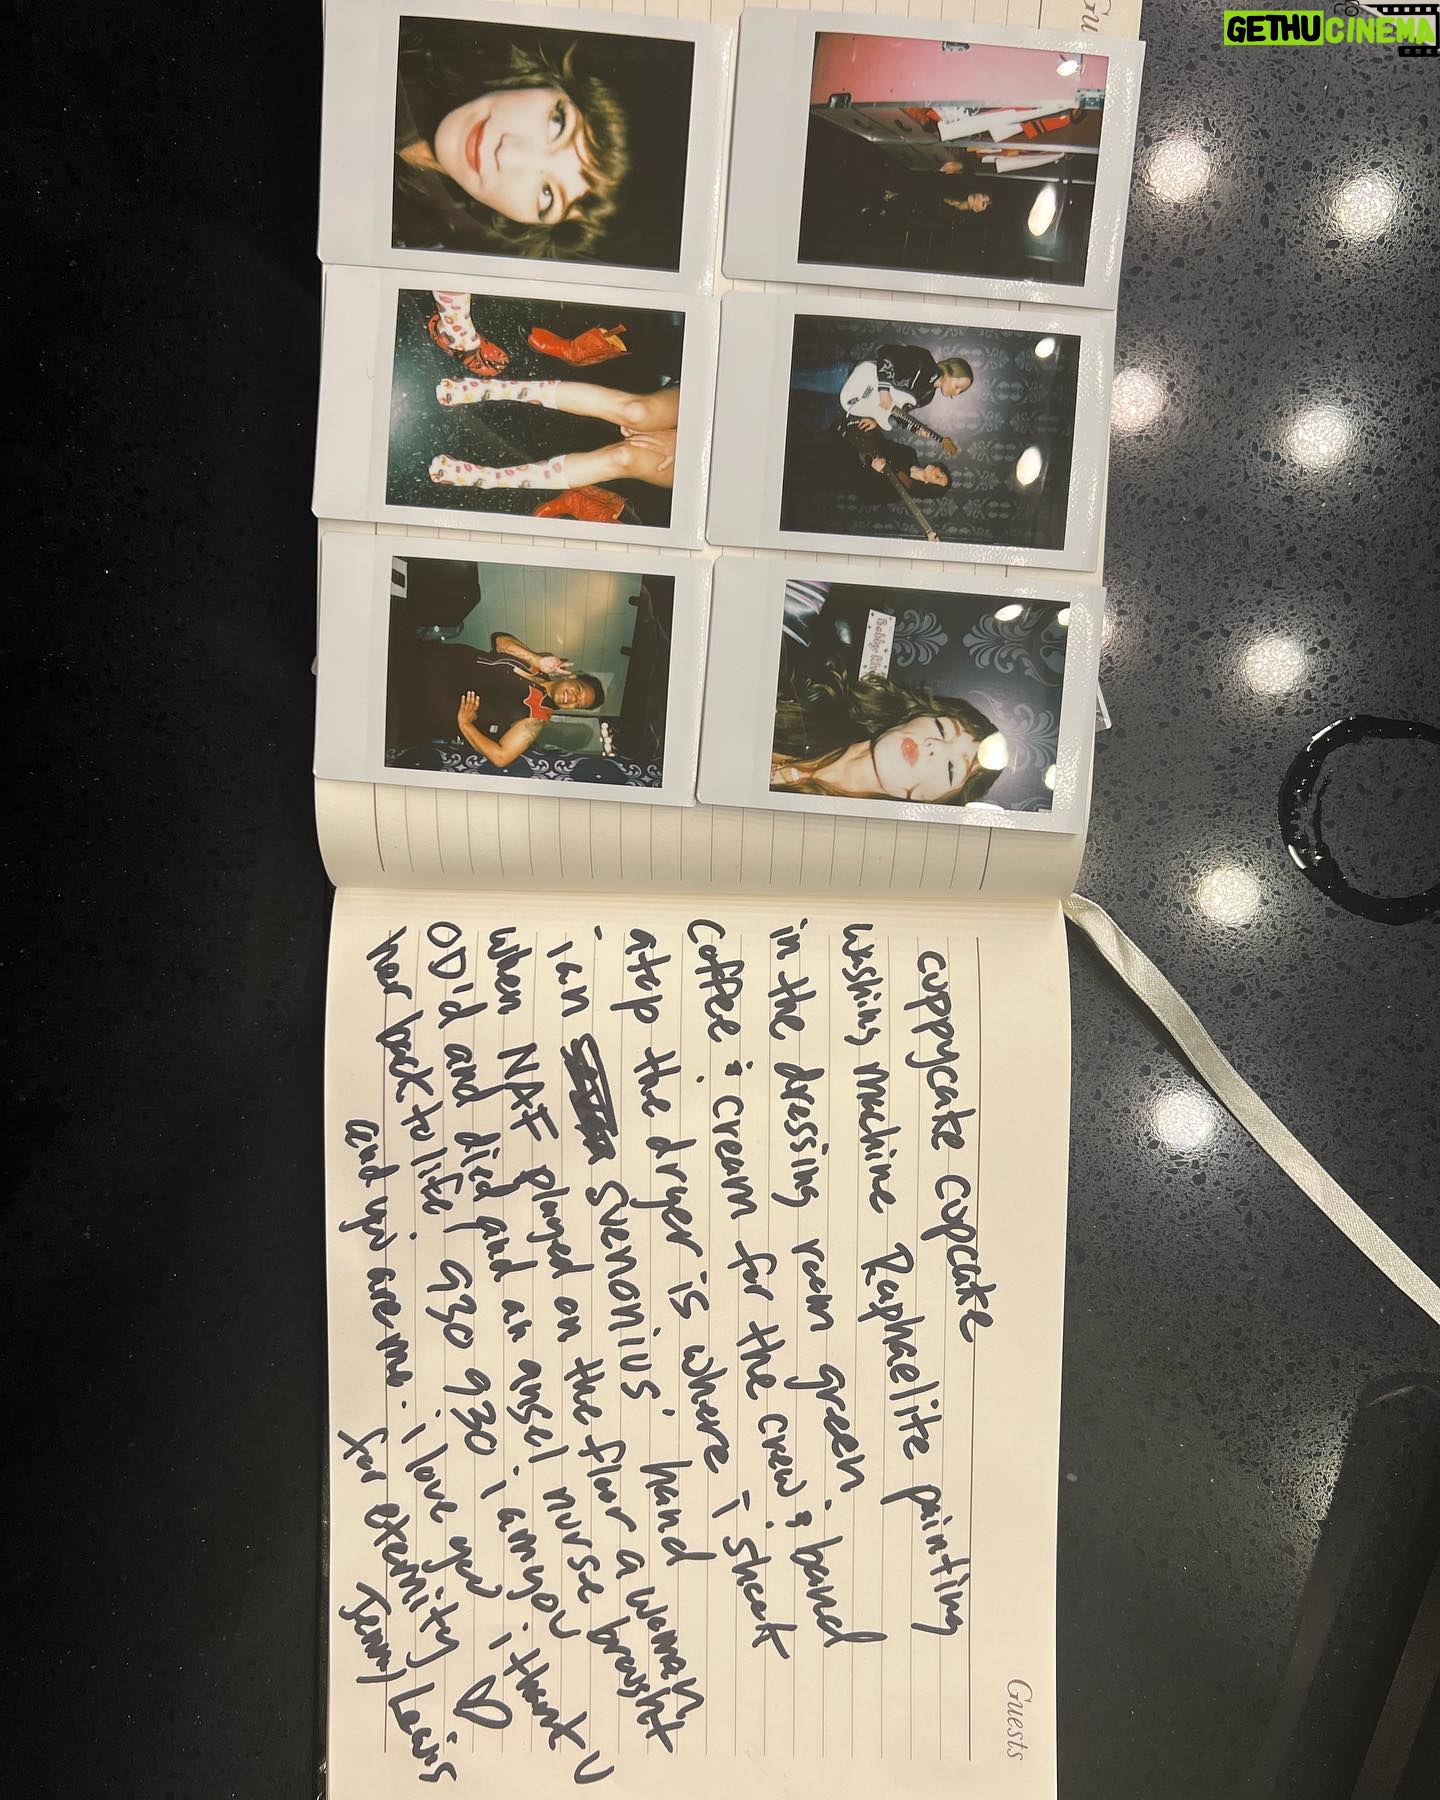 GETHUCINEMA
Gu
Bobby
Guests
cuppycate cupcate
washing machine Raphaelite painting
in the dressing room green. band
coffee & cream for the crew &
atop the dryer is where I sheet
- Ian SVENONIUS' hand
when NAF played on the floor a woman,
OD'd and died and an angel nurse brought
her back to life! 930 930 i am you
and you are me. i love you i thank U
for eternity ♡
Jenny Lewis